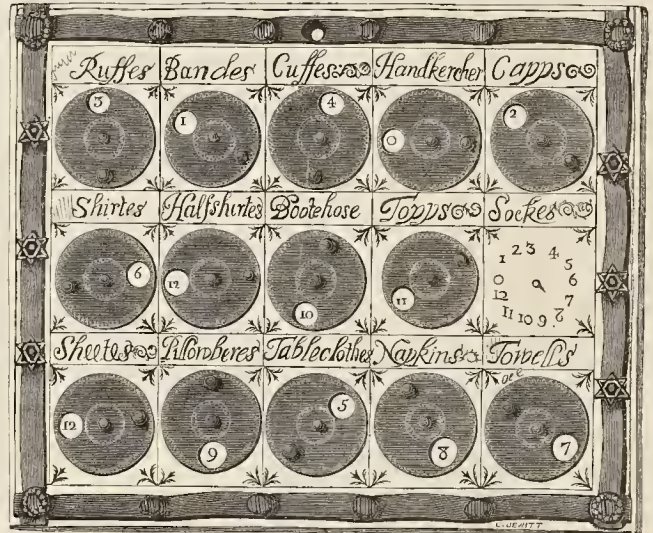 Ruffes Bandes Cuffes Handkercher Capps
3 1 4 0 2
Shirtes Halfshirtes Bootehose Topps Sockes
6 12 10 11
1 2 3 4 5 6 7 8 9 10 11 12 0
Sheetes Pillowberes Tableclothes Napkins Towells
12 9 5 8 7
L. JEWITT